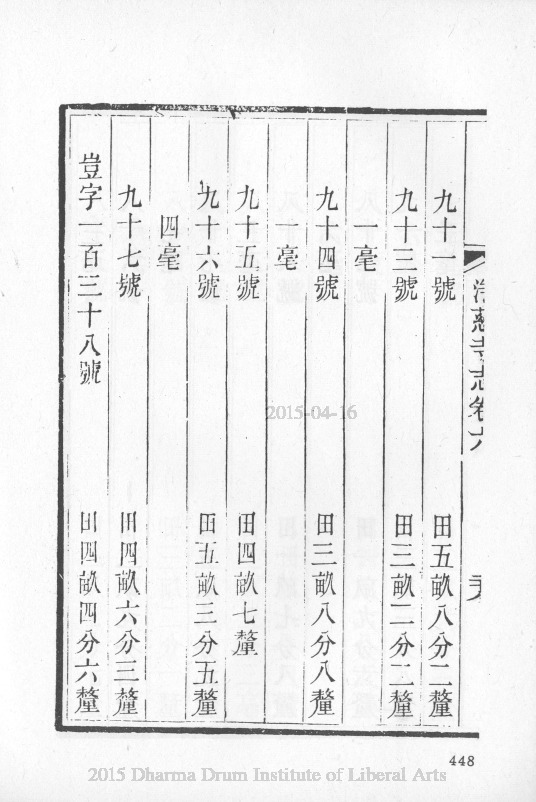 淨慈寺志卷六
九十一號 田五畝八分二釐
九十三號 田三畝二分二釐
一毫
九十四號 田三畝八分八釐
一毫
九十五號 田四畝七釐
九十六號 田五畝三分五釐
四毫
九十七號 田四畝六分三釐
豈字一百三十八號 田四畝四分六釐
448
2015-04-16
2015 Dharma Drum Institute of Liberal Arts